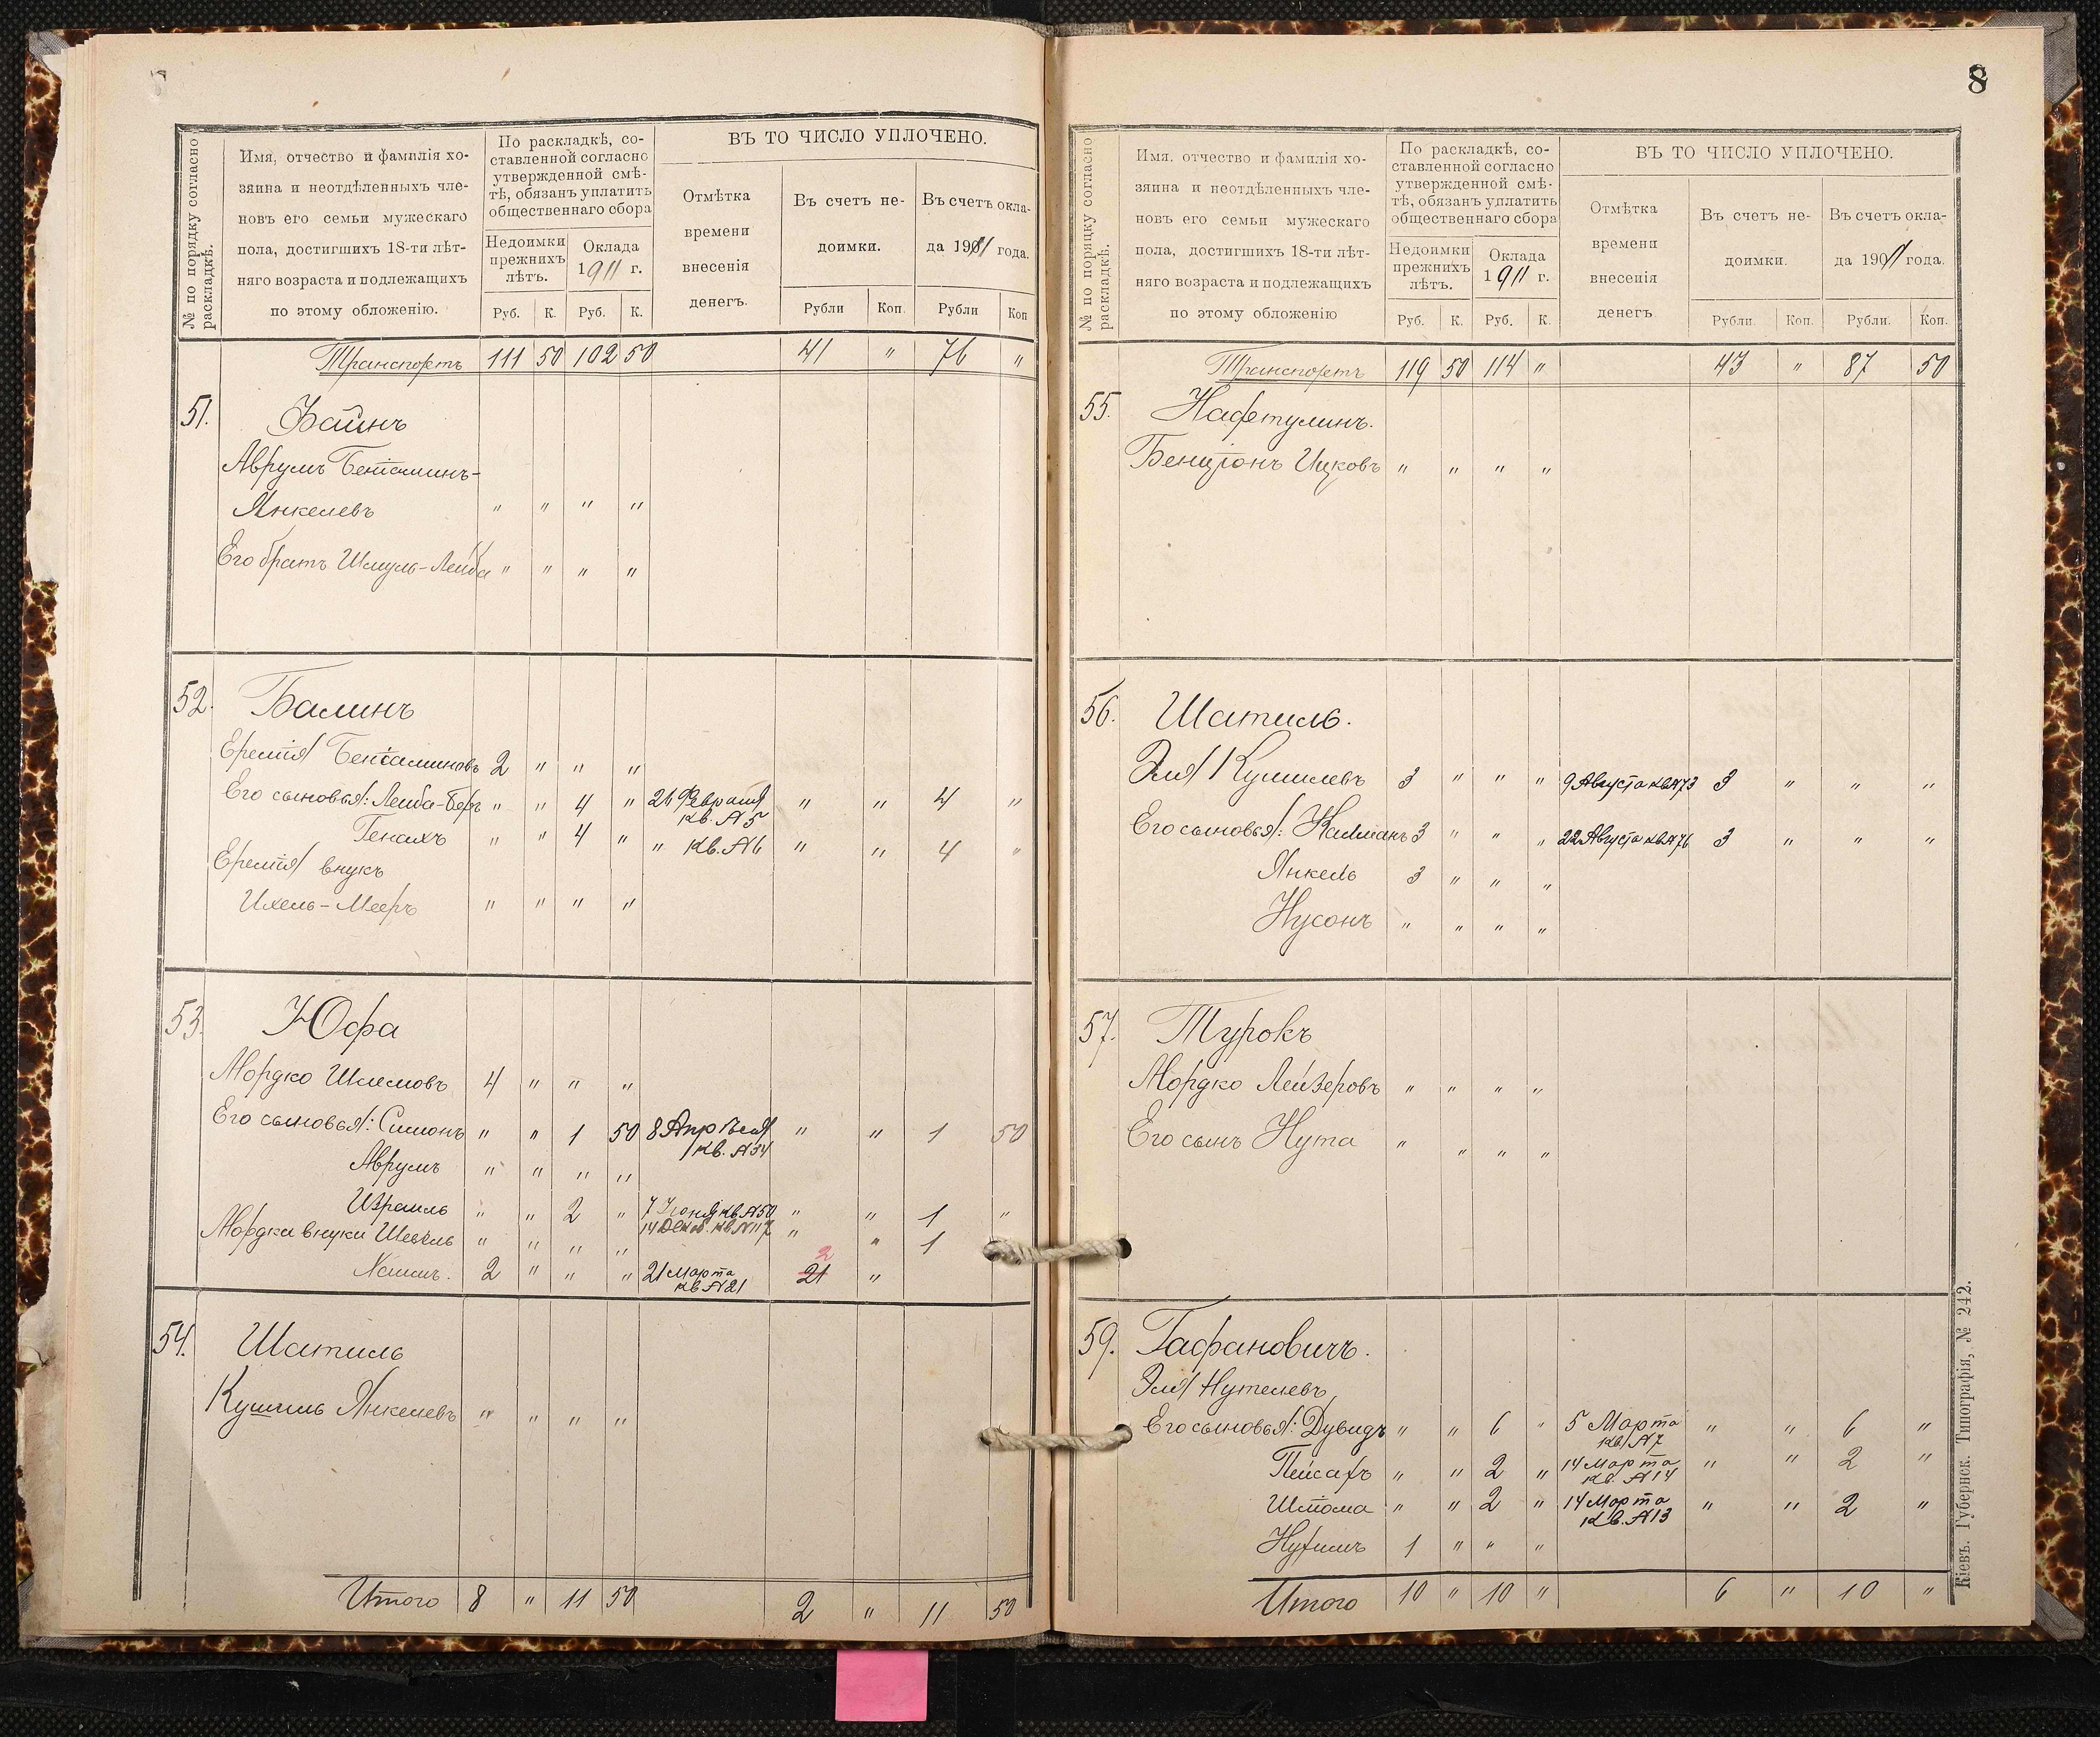 № по порядку согласно раскладкѣ.
Имя, отчество и фамилія хозяина и неотдѣленныхъ чле-
новъ его семьи мужескаго
пола, достигшихъ 18-ти лѣт-
няго возраста и подлежащихъ
по этому обложенію.
По раскладкѣ, со-
ставленной согласно
утвержденной смѣ-
тѣ, обязанъ уплатить
общественнаго сбора
Недоимки прежнихъ лѣтъ.
Оклада 1911 г.
Руб. К. Руб. К.
ВЪ ТО ЧИСЛО УПЛОЧЕНО.
Отмѣтка времени внесенія денегъ.
Въ счетъ недоимки.
Въ счетъ оклада 1911 года.
Рубли Коп. Рубли Коп
Транспортъ 111 50 102 50 41 " 76 "
51. Байнъ
Аврумъ Беніаминъ-
Янкелевъ " " " "
Его братъ Шмуль-Лейба " " " "
52. Балинъ
Еремія Беніаминовъ 2 " " "
Его сыновья: Лейба-Беръ " " 4 " 21 Февраля " " 4 "
кв. № 5
Генахъ " " 4 " " кв. № 6 " " 4 "
Еремія внукъ
Ихель-Мееръ " " " "
53. Юфа
Мордко Шлемовъ 4 " " "
Его сыновья: Симонъ " " 1 50 8 Апрѣля " " 1 50
кв. № 34
Аврумъ " " " "
Израиль " " 2 " 7 Іюня кв № 50 " " 1 "
14 Декаб. кв № 117 " " 1
Мордка внуки Шевель " " " "
2
Хаимъ. 2 " " " 21 Марта 21 "
кв № 21
54. Шатиль
Кушиль Янкелевъ " " " "
Итого 8 " 11 50 2 " 11 50
8
№ по порядку согласно раскладкѣ.
Имя, отчество и фамилія хо-
зяина и неотдѣленныхъ чле-
новъ его семьи мужескаго
пола, достигшихъ 18-ти лѣт-
няго возраста и подлежащихъ
по этому обложенію
По раскладкѣ, со-
ставленной согласно
утвержденной смѣ-
тѣ, обязанъ уплатить
общественнаго сбора
Недоимки прежнихъ лѣтъ.
Оклада 1911 г.
Руб. К. Руб. К.
ВЪ ТО ЧИСЛО УПЛОЧЕНО.
Отмѣтка времени внесенія денегъ
Въ счетъ недоимки.
Въ счетъ оклада 1911 года.
Рубли. Коп. Рубли. Коп.
Транспортъ 119 50 114 " 43 " 87 50
55. Нафтулинъ.
Бенціонъ Ицковъ " " " "
56. Шатиль.
Эля Кушилевъ 3 " " " 9 Августа кв № 73 3 " " "
Его сыновья: Калманъ 3 " " " 22 Августа кв № 76 3 " " "
Янкель 3 " " "
Нусонъ " " " "
57. Турокъ
Мордко Лейзеровъ " " " "
Его сынъ Нута " " " "
59. Гафановичъ.
Эля Нутелевъ
Его сыновья: Дувидъ " " 6 " 5 Марта " " 6 "
кв. № 7
Пейсахъ " " 2 " 14 Марта " " 2 "
кв. № 14
Шлома " " 2 " 14 Марта " " 2 "
кв. № 13
Нухимъ 1 " " "
Итого 10 " 10 " 6 " 10 "
Кіевъ. Губернск. Типографія, № 242.